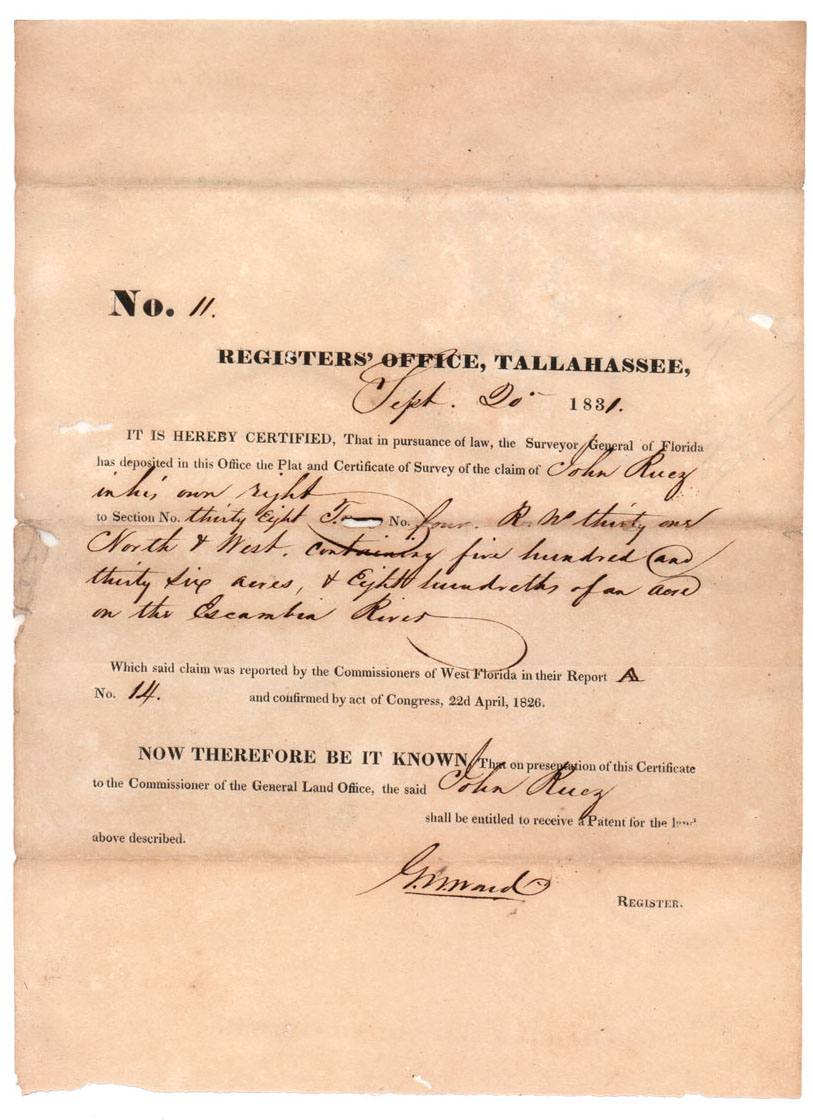 No. 11.
REGISTERS' OFFICE, TALLAHASSEE,
Sept. 20 1831.
IT IS HEREBY CERTIFIED, That in pursuance of law, the Surveyor General of Florida
has deposited in this Office the Plat and Certificate of Survey of the claim of John Ruez
in his own right
to Section No. thirty Eight No. four. R. W. thirty one
North & West. containing five hundred and
thirty six acres, & Eight hundreths of an acre
on the Escambia River
Which said claim was reported by the Commissioners of West Florida in their Report A
No. 14. and confirmed by act of Congress, 22d April, 1826.
NOW THEREFORE BE IT KNOWN, That on presentation of this Certificate
to the Commissioner of the General Land Office, the said John Ruez
shall be entitled to receive a Patent for the land
above described.
G. W. Ward
REGISTER.